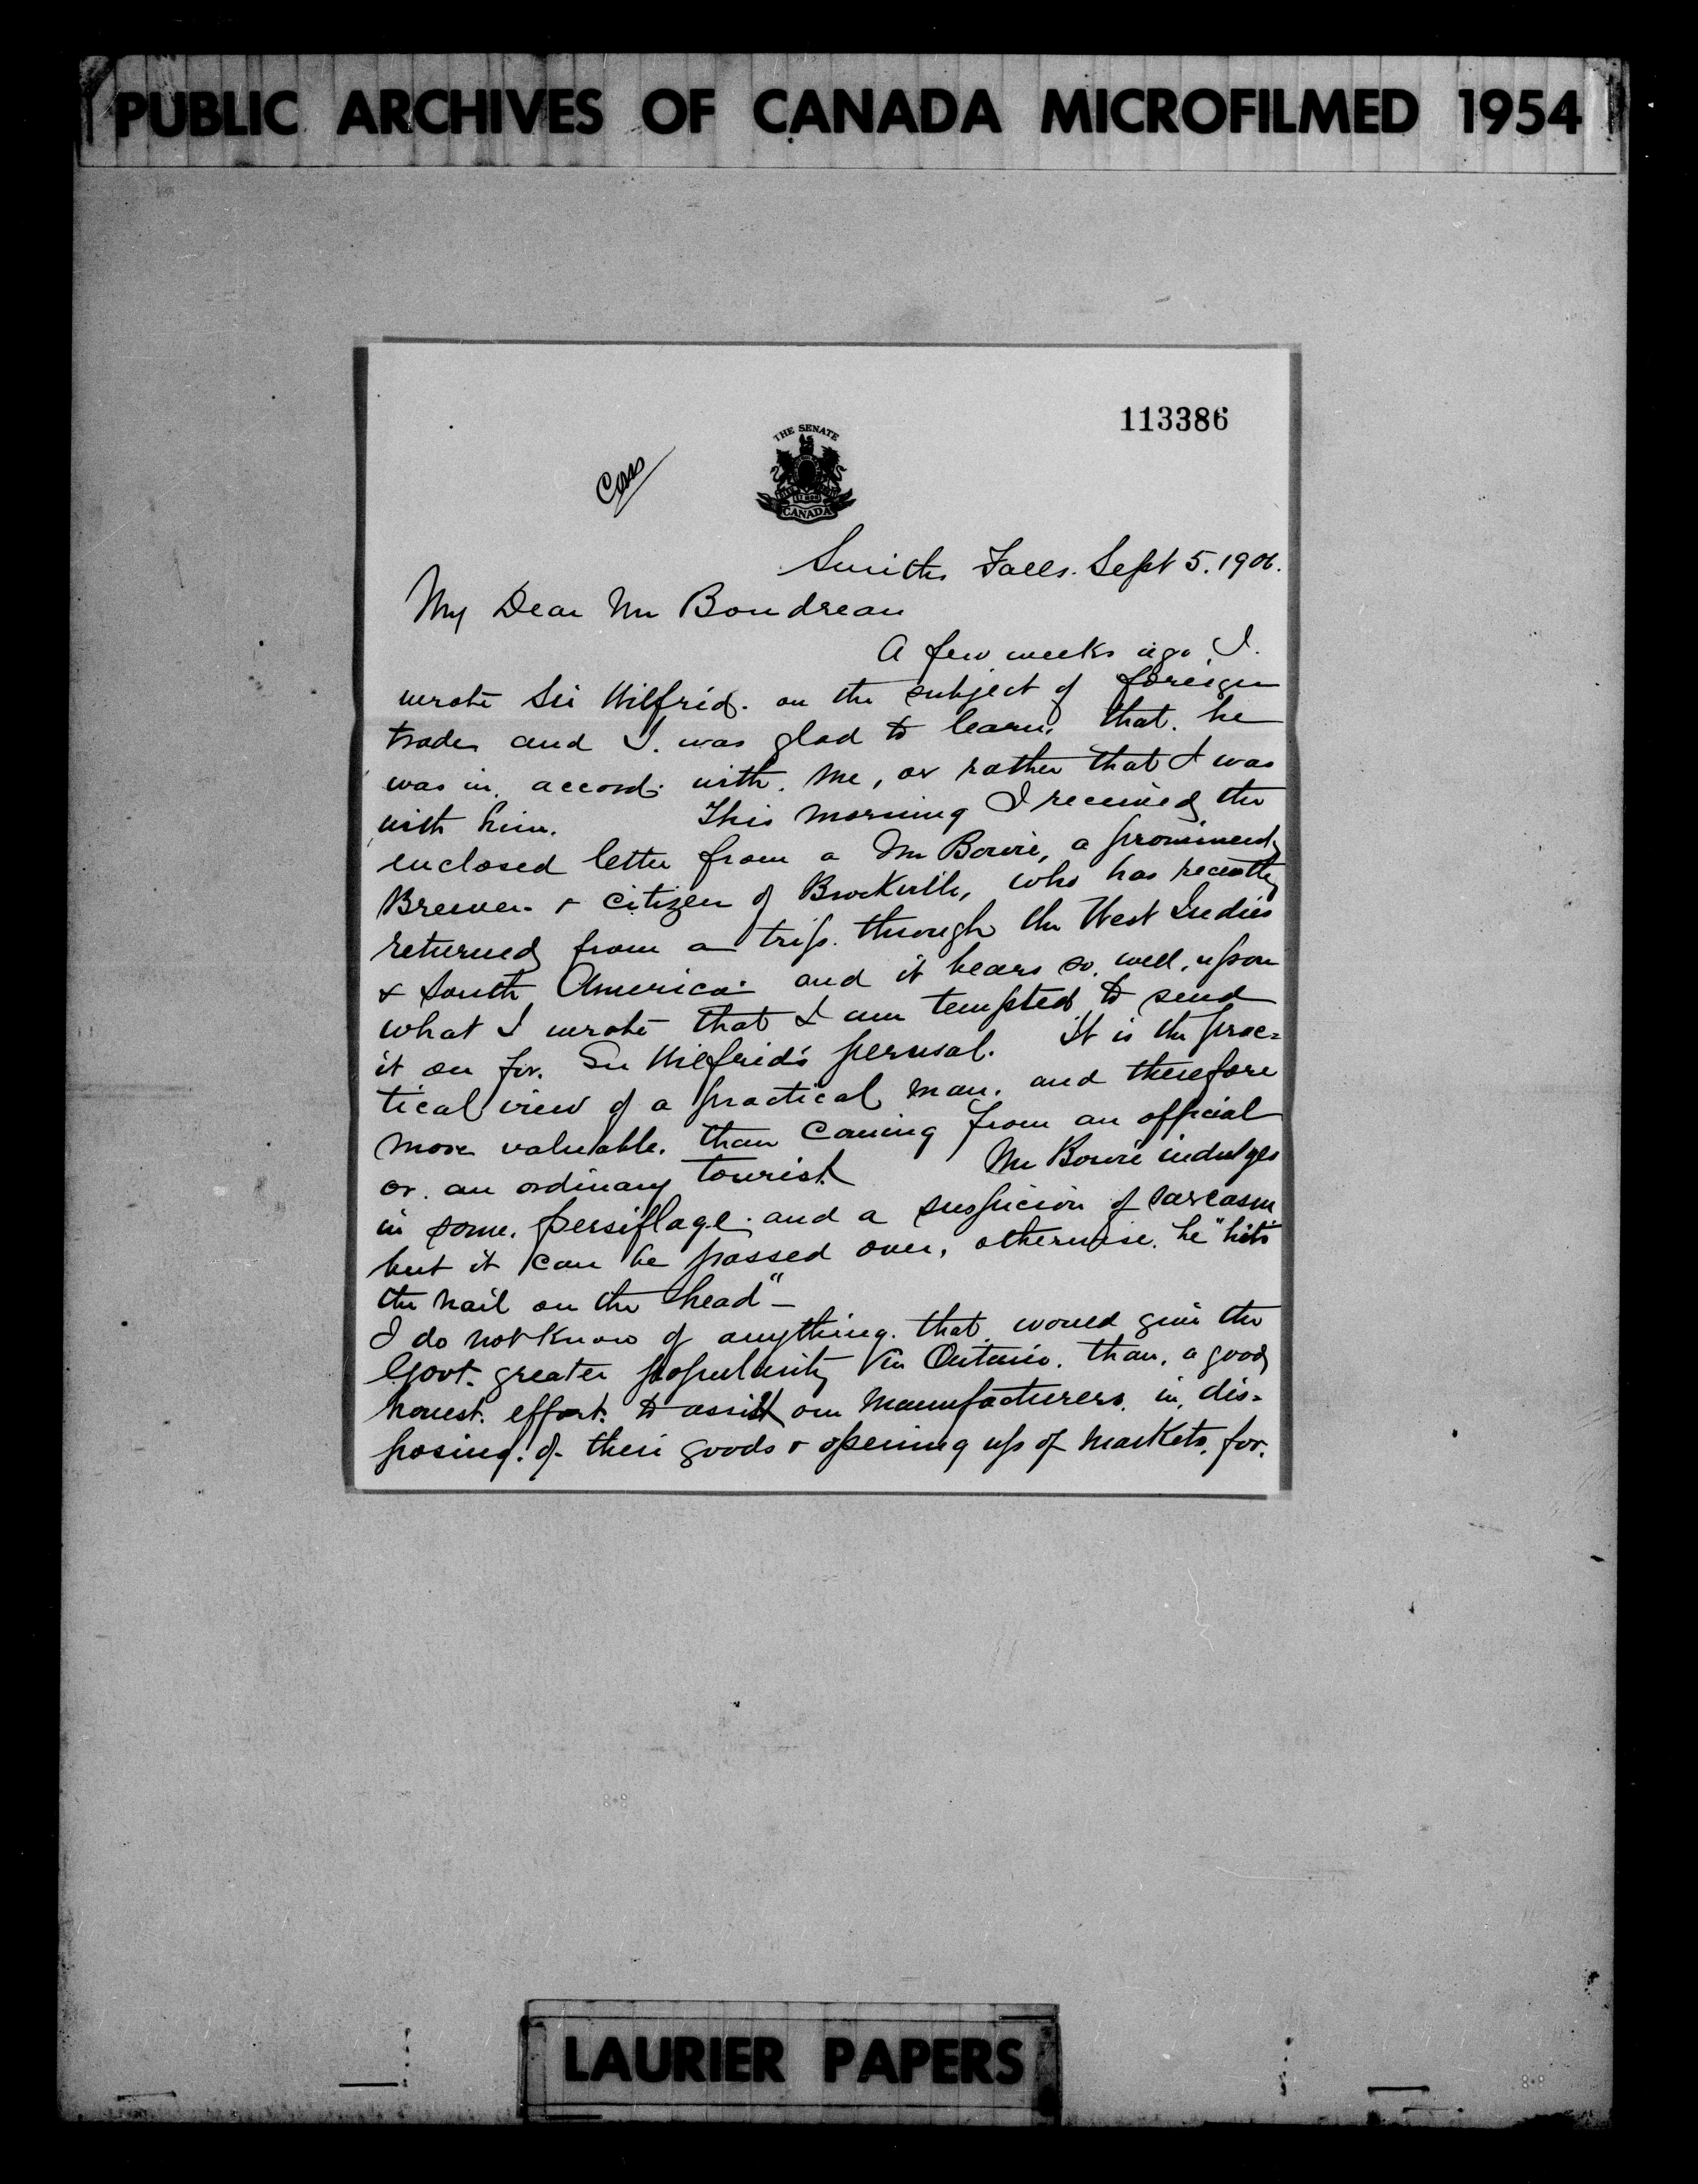 PUBLIC ARCHIVES OF CANADA MICROFILMED 1954
113386
THE SENATE
CANADA
Smiths Falls. Sept 5. 1906.
My Dear Mr Boudreau
A few weeks ago, I.
wrote Sir Wilfrid. on the subject of foreign
trade and I. was glad to learn, that. he
was in. accord. with. me, or rather that I was
with him. This morning I received the
enclosed letter from a Mr Bowie, a prominent
Brewer & citizen of Brockville, who has recently
returned from a trip. through the West Indies
& South America. and it bears so. well, upon
what I wrote that I am tempted to send
it on for. Sir Wilfrid's perusal. It is the prac=
tical view of a practical man. and therefore
more valuable. than coming from an official
or. an ordinary tourist Mr Bowie indulges
in some. persiflage. and a suspicion of sarcasm
but it can be passed over, otherwise. he "hits
the nail on the head" -
I do not know of anything. that would give the
Govt. greater popularity in Ontario. than, a good
honest. effort. to assist our manufacturers. in, dis=
posing. of. their goods & opening up of markets. for.
LAURIER PAPERS